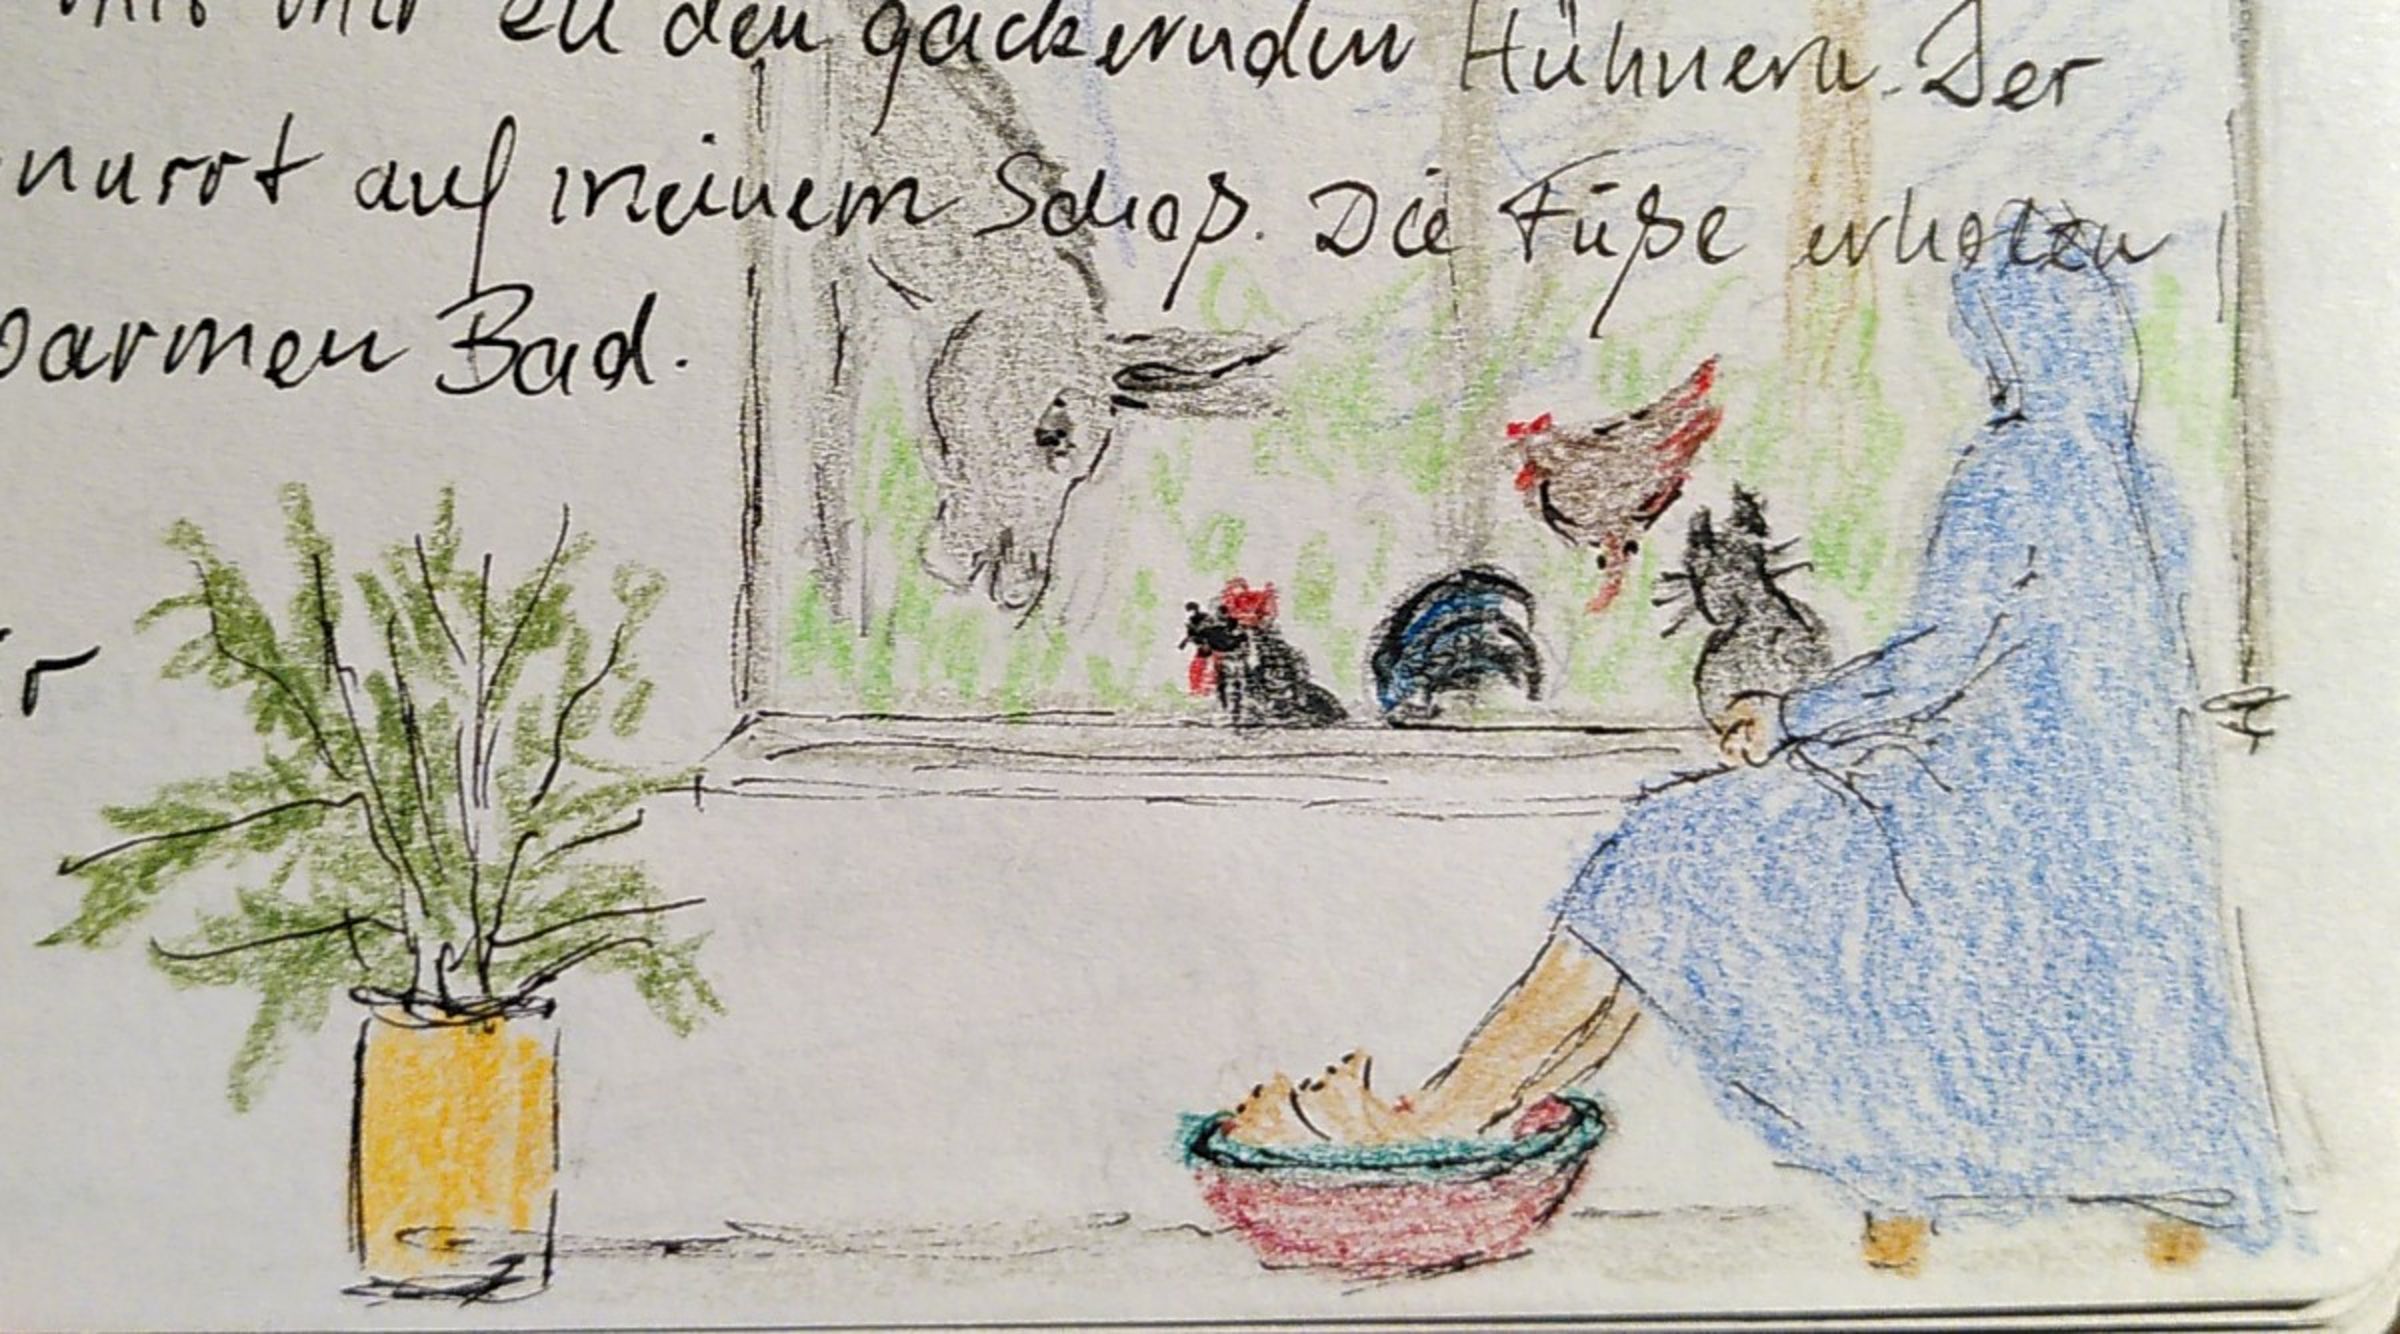 mit mir zu den gackernden Hühnern. Der
nurrt auf meinem Schoß. Die Füße erholen
armen Bad.
r